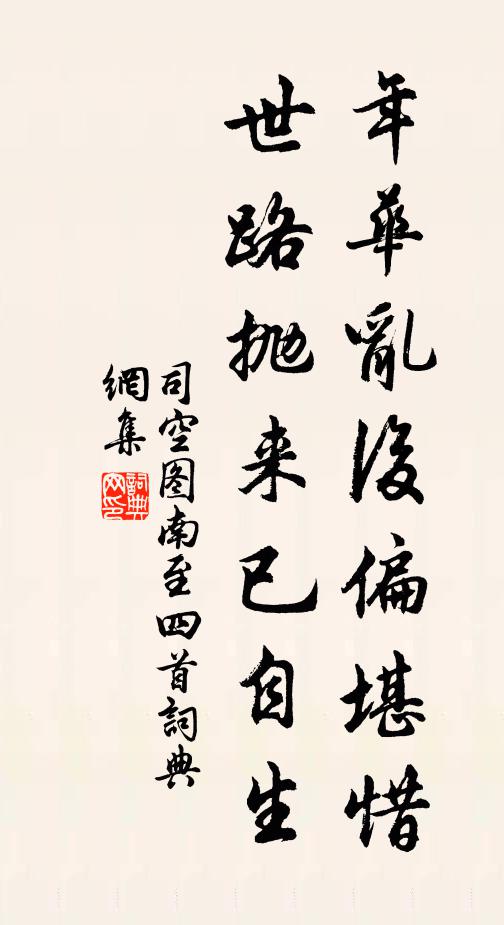 年華亂後偏堪惜
世路抛来已自生
司空图南至四首詞典
網集
詞典
网印